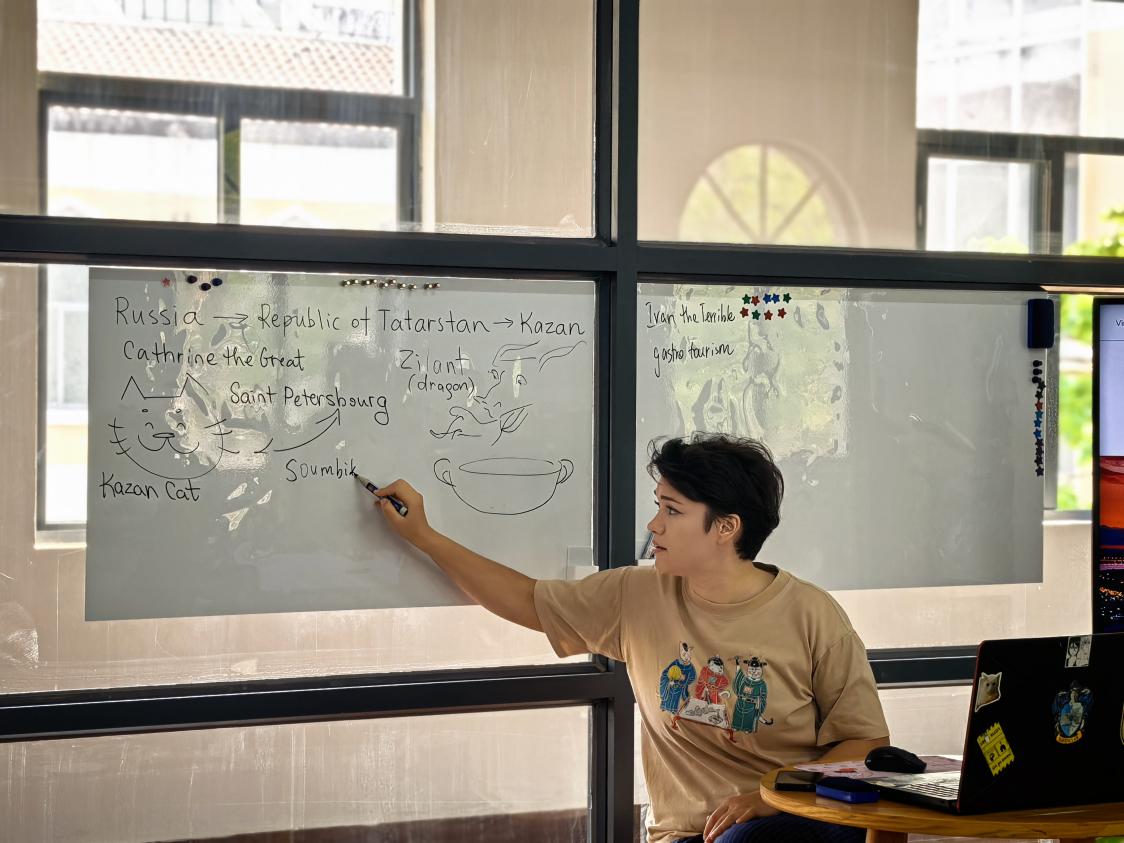 Russia → Republic of Tatarstan → Kazan
Cathrine the Great
Zilant
(dragon)
Saint Petersbourg
Soumbik
Kazan Cat
Ivan the Terrible
gastro tourism